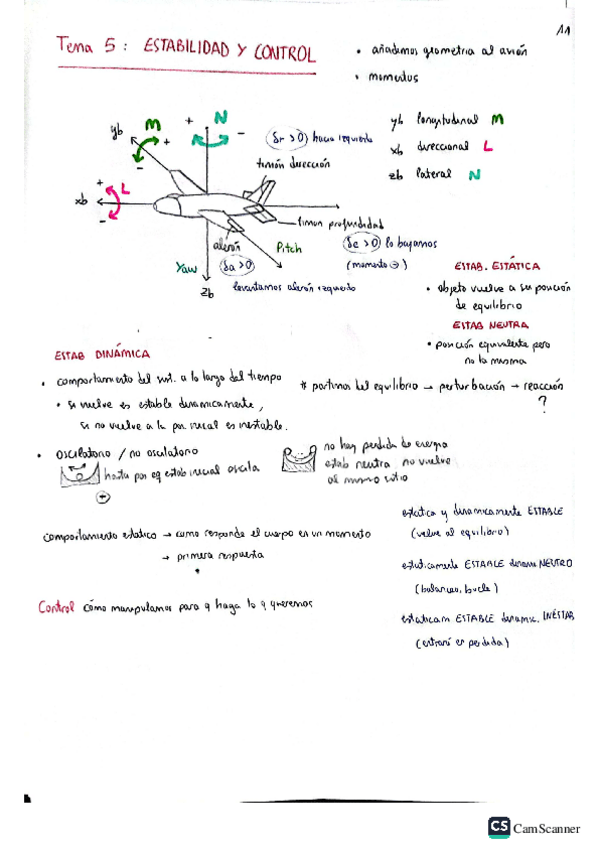 11
Tema 5: ESTABILIDAD Y CONTROL
• añadimos geometria al avión
• momentos
yb longitudinal M
xb direccional L
zb lateral N
yb
M
+
-
+
N
-
(δr > 0) hacia izquierda
timón dirección
xb
+
L
-
timon profundidad
alerón
Pitch
(δe > 0) lo bajamos
(momento ⊖)
Yaw
(δa > 0)
levantamos alerón izquierdo
zb
ESTAB. ESTÁTICA
• objeto vuelve a su posición
de equilibrio
ESTAB NEUTRA
• posición equivalente pero
no la misma
ESTAB DINÁMICA
• comportamiento del sist. a lo largo del tiempo
• si vuelve es estable dinamicamente,
si no vuelve a la pos inicial es inestable.
* partimos del equilibrio → perturbación → reacción
?
• oscilatorio / no oscilatorio
hasta pos eq estab inicial oscila
+
no hay perdida de energia
estab neutra no vuelve
al mismo sitio
comportamiento estatico → como responde el cuerpo en un momento
→ primera respuesta
estatica y dinamicamente ESTABLE
(vuelve al equilibrio)
estaticamente ESTABLE dinam NEUTRO
(balanceo, bucle)
estaticam ESTABLE dinamic. INESTAB
(entrará en perdida)
Control cómo manipulamos para q haga lo q queremos
CS CamScanner